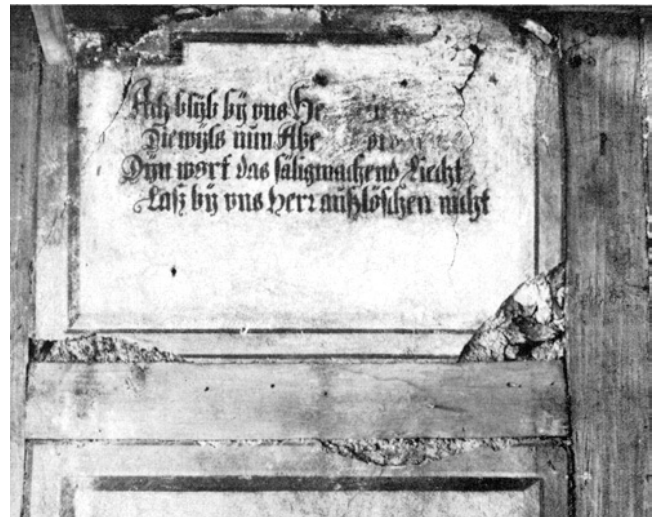 Ach blÿb bÿ vns He
Diewÿls nun Abe
Dÿn wort das säligmachend Liecht
Lasz bÿ vns Herr auszlöschen nicht